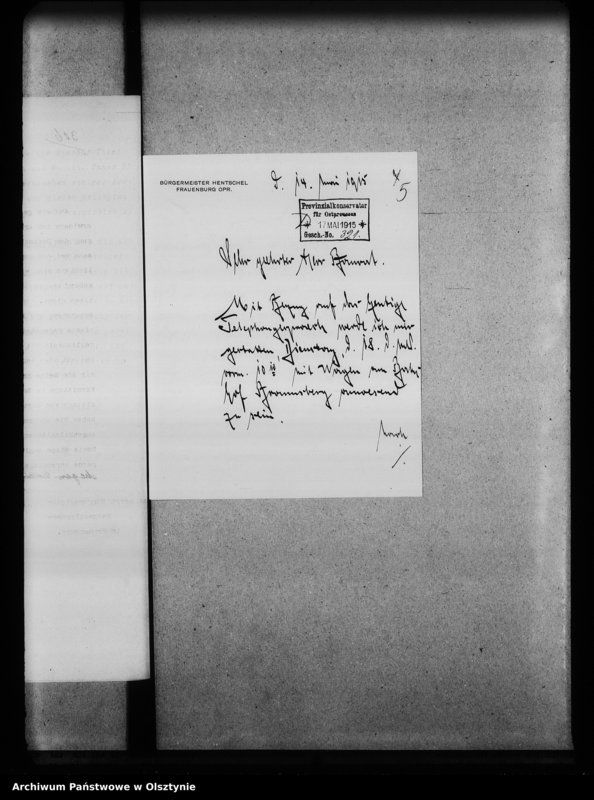 306
BÜRGERMEISTER HENTSCHEL
FRAUENBURG OPR.
d. 14. Mai 1915
5
Provinzialkonservator
für Ostpreussen
17 MAI 1915
Gesch.-No. 321.
Sehr geehrter Herr Baurat.
Mit Bezug auf das heutige
Telephongespräch werde ich mir
gestatten, Dienstag, d. 18. d. Mts.
vorm. 10 mit Wagen am Bahn-
hof Braunsberg anwesend
zu sein.
Archiwum Państwowe w Olsztynie